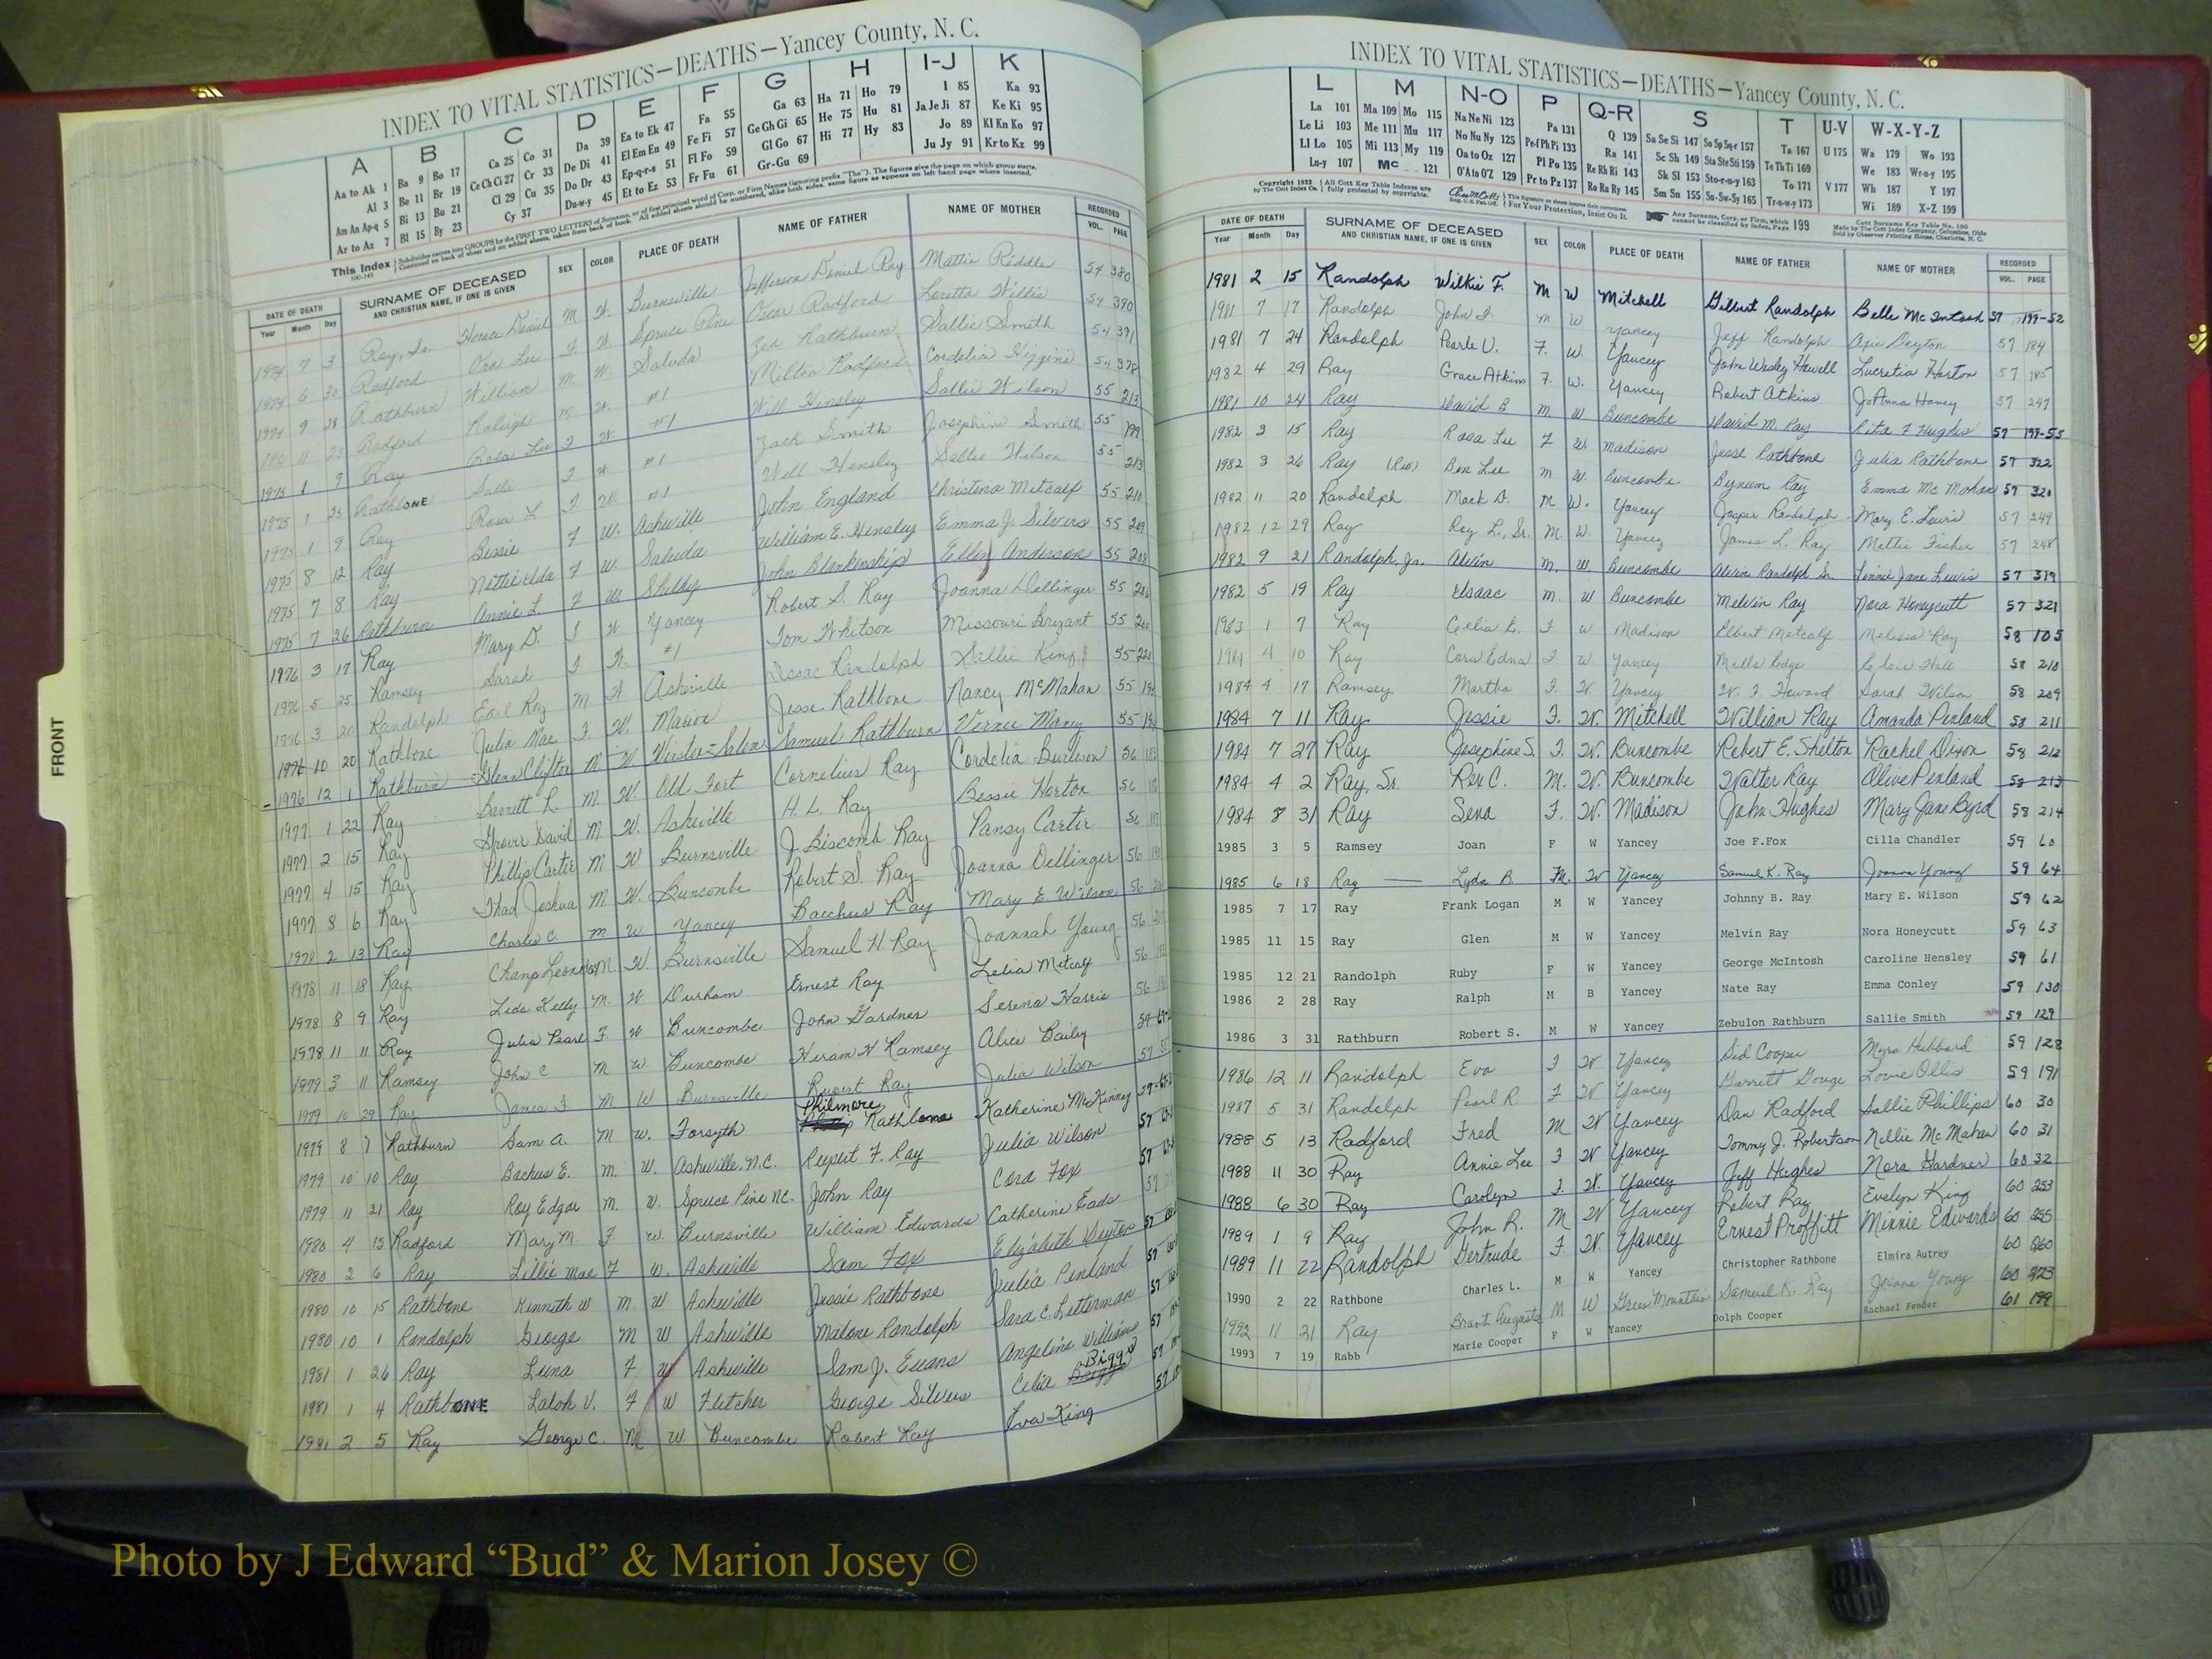 INDEX TO VITAL STATISTICS—DEATHS—Yancey County, N. C.
A B C D E F G H I-J K
Aa to Ak 1 Ba 9 Bo 17 Ca 25 Co 31 Da 39 Ea to Ek 47 Fa 55 Ga 63 Ha 71 Ho 79 I 85 Ka 93
Al 3 Be 11 Br 19 Ce Ch Ci 27 Cr 33 De Di 41 El Em En 49 Fe Fi 57 Ge Gh Gi 65 He 75 Hu 81 Ja Je Ji 87 Ke Ki 95
Am An Ap-q 5 Bi 13 Bu 21 Cl 29 Cu 35 Do Dr 43 Ep-q-r-s 51 Fl Fo 59 Gl Go 67 Hi 77 Hy 83 Jo 89 Kl Kn Ko 97
Ar to Az 7 Bl 15 By 23 Cy 37 Du-w-y 45 Et to Ez 53 Fr Fu 61 Gr-Gu 69 Ju Jy 91 Kr to Kz 99
This Index
DATE OF DEATH SURNAME OF DECEASED SEX COLOR PLACE OF DEATH NAME OF FATHER NAME OF MOTHER RECORDED
Year Month Day AND CHRISTIAN NAME, IF ONE IS GIVEN VOL. PAGE
1974 7 3 Ray, Sr. Homer Daniel M. W. Burnsville Jefferson Daniel Ray Mattie Riddle 54 380
1974 6 30 Radford Ora Lee F W. Spruce Pine Oscar Radford Loretta Willis 54 390
1974 9 28 Rathburn William M. W. Saluda Zeb Rathburn Sallie Smith 54 391
11 Radford Raleigh M. W. #1 Milton Radford Cordelia Higgins 54 378
1975 1 9 Ray Rosa Lee F W. #1 Will Hensley Sallie Wilson 55 213
1975 1 25 RathbONE Salle F W #1 Zack Smith Josephine Smith 55 199
1975 1 9 Ray Rosa L F W. #1 Will Hensley Sallie Wilson 55 213
1975 8 12 Ray Bessie F W. Asheville John England Christina Metcalf 55 210
1975 7 8 Ray Nettie Elda F W. Saluda William E. Hensley Emma J. Silvers 55 209
1975 7 26 Rathburn Annie L. F W Shelby John Blankenship Ellen Anderson 55 208
1976 3 17 Ray Mary D. F W Yancey Robert S. Ray Joanna Dellinger 55
1976 5 25 Ramsey Sarah F W. #1 Tom Whitson Missouri Bryant 55
1976 3 20 Randolph Earl Roy M. W Asheville Isaac Randolph Sallie King 55
1976 10 20 Rathbone Julia Mae F. W. Marion Jesse Rathbone Nancy McMahan 55
1976 12 1 Rathburn Glenn Clifton M W Winston-Salem Samuel Rathburn Vernie Maney 55
1977 1 22 Ray Garrett R. M. W. Old Fort Cornelius Ray Cordelia Burleson 56
1977 2 15 Ray Grover David M W. Asheville H. L. Ray Bessie Horton 56
1977 4 15 Ray Phillip Carter M W Burnsville J. Biscomb Ray Pansy Carter 56
1977 8 6 Ray Thad Joshua M W. Buncombe Robert S. Ray Joanna Dellinger 56
1978 2 13 Ray Charlie C. M W Yancey Bacchus Ray Mary E. Wilson 56
1978 11 18 Ray Champ M. W. Burnsville Samuel H Ray Joannah Young 56
1978 8 9 Ray Lida Kelly M. W Durham Ernest Ray Lelia Metcalf 56
1978 11 11 Ray Julia Pearl F. W Buncombe John Gardner Serena Harris 56
1979 3 11 Ramsey John C M W Buncombe Hiram H Ramsey Alice Baily
1979 10 29 Ray James F M W Burnsville Rupert Ray Julia Wilson 57
1979 8 7 Rathburn Sam A. M W. Forsyth Philmore Rathbone Katherine McKinney
1979 10 10 Ray Bachus E. M. W. Asheville, N.C. Rupert F. Ray Julia Wilson 57
1979 11 21 Ray Roy Edgar M. W. Spruce Pine NC. John Ray Cora Fox 57
1980 4 15 Radford Mary M. F W. Burnsville William Edwards Catherine Eads 57
1980 2 6 Ray Lillie Mae F W. Asheville Sam Fox Elizabeth Deyton 57
1980 10 15 Rathbone Kennith W M. W Asheville Jessie Rathbone Julia Penland 57
1980 10 1 Randolph George M W Asheville Malone Randolph Sara C. Letterman 57
1981 1 26 Ray Luna F W Asheville Sam J. Evans Angeline Williams 57
1981 1 4 RathbONE Laloh V. F W Fletcher George Silvers Celia Biggs 57
1981 2 5 Ray George C. M W Buncombe Robert Ray Eva King 57
FRONT
INDEX TO VITAL STATISTICS—DEATHS—Yancey County, N. C.
L M N-O P Q-R S T U-V W-X-Y-Z
La 101 Ma 109 Mo 115 Na Ne Ni 123 Pa 131 Q 139 Sa Se Si 147 So Sp Sq-r 157 Ta 167 U 175 Wa 179 Wo 193
Le Li 103 Me 111 Mu 117 No Nu Ny 125 Pe-f Ph Pi 133 Ra 141 Sc Sh 149 Sta Ste Sti 159 Te Th Ti 169 We 183 Wr-u-y 195
Ll Lo 105 Mi 113 My 119 Oa to Oz 127 Pl Po 135 Re Rh Ri 143 Sk Sl 153 Sto-r-u-y 163 To 171 V 177 Wh 187 Y 197
Lu-y 107 Mc 121 O'A to O'Z 129 Pr to Pz 137 Ro Ru Ry 145 Sm Sn 155 Su-Sw-Sy 165 Tr-u-w-y 173 Wi 189 X-Z 199
DATE OF DEATH SURNAME OF DECEASED SEX COLOR PLACE OF DEATH NAME OF FATHER NAME OF MOTHER RECORDED
Year Month Day AND CHRISTIAN NAME, IF ONE IS GIVEN VOL. PAGE
1981 2 15 Randolph Wilkie F. M W Mitchell Gilbert Randolph Belle McIntosh 57 199-52
1981 7 17 Randolph John F. M W Yancey Jeff Randolph Deyton 57 184
1981 7 24 Randolph Pearle V. F. W. Yancey John Wesley Howell Lucretia Horton 57 185
1982 4 29 Ray Grace Atkins F. W. Yancey Robert Atkins JoAnna Haney 57 247
1981 10 24 Ray David B M. W Buncombe David M. Ray Rita F Hughes 57 199-55
1982 3 15 Ray Rosa Lee F W. Madison Jesse Rathbone Julia Rathbone 57 322
1982 3 26 Ray Ben Lee M W. Buncombe Bynum Ray Emma McMahan 57 320
1982 11 20 Randolph Mack D. M W. Yancey Jasper Randolph Mary E. Lewis 57 249
1982 12 29 Ray Roy L., Sr. M. W. Yancey James L. Ray Mattie Fisher 57 248
1982 9 21 Randolph, Jr. Alvin M. W. Buncombe Alvin Randolph Sr. Finnie Jane Lewis 57 319
1982 5 19 Ray Isaac M. W Buncombe Melvin Ray Nora Honeycutt 57 321
1983 1 7 Ray Celia E. F W Madison Elbert Metcalf Melissa Ray 58 105
1984 4 10 Ray Cora Edna F W Yancey Mills Hall 58 210
1984 4 17 Ramsey Martha F. W. Yancey W. F. Howard Sarah Wilson 58 209
1984 7 11 Ray Jessie F. W. Mitchell William Ray Amanda Penland 58 211
1984 7 27 Ray Josephine S. F. W. Buncombe Robert E. Shelton Rachel Dixon 58 212
1984 4 2 Ray, Sr. Rex C. M. W. Buncombe Walter Ray Olive Penland 58 213
1984 8 31 Ray Sena F. W. Madison John Hughes Mary Jane Byrd 58 214
1985 3 5 Ramsey Joan F W Yancey Joe F.Fox Cilla Chandler 59 60
1985 6 18 Ray Lyda B. M. W Yancey Samuel K. Ray Joanna Young 59 64
1985 7 17 Ray Frank Logan M W Yancey Johnny B. Ray Mary E. Wilson 59 62
1985 11 15 Ray Glen M W Yancey Melvin Ray Nora Honeycutt 59 63
1985 12 21 Randolph Ruby F W Yancey George McIntosh Caroline Hensley 59 61
1986 2 28 Ray Ralph M B Yancey Nate Ray Emma Conley 59 130
1986 3 31 Rathburn Robert S. M W Yancey Zebulon Rathburn Sallie Smith 59 129
1986 12 11 Randolph Eva F W Yancey Sid Cooper Myra Hubbard 59 128
1987 5 31 Randolph Pearl R. F W Yancey Garrett Gouge Lovie Ollis 59 191
1988 5 13 Radford Fred M W Yancey Dan Radford Sallie Phillips 60 30
1988 11 30 Ray Annie Lee F W Yancey Tommy J. Robertson Nellie McMahan 60 31
1988 6 30 Ray Carolyn F. W. Yancey Jeff Hughes Nora Gardner 60 32
1989 1 9 Ray John R. M W Yancey Robert Ray Evelyn King 60 253
1989 11 22 Randolph Gertrude F W. Yancey Ernest Proffitt Minnie Edwards 60 255
1990 2 22 Rathbone Charles L. M W Yancey Christopher Rathbone Elmira Autrey 60
1992 11 21 Ray Brant Augusta M W Green Mountain Samuel K. Ray Joanna Young 60
1993 7 19 Rabb Marie Cooper F W Yancey Dolph Cooper Rachael Fender 61 199
Photo by J Edward “Bud” & Marion Josey ©